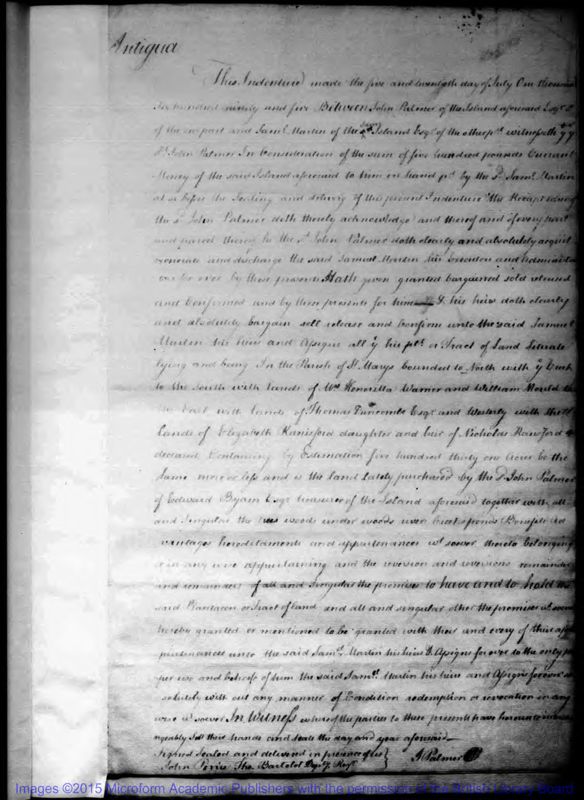 Antigua
This Indenture made the five and twentyeth day of July One thousand
Six hundred ninety and five Between John Palmer of the Island aforesaid Esqr
of the one part and Saml. Martin of the sd. Island Esqr. of the other pt. witnesseth yt ye
Sd. John Palmer In Consideration of the sum of five hundred pounds Currant
Money of the said Island aforesaid to him in hand pd. by the Sd. Saml. Martin
at or before the Sealing and delivry of this present Indenture the Receipt whereof
the Sd. John Palmer doth thereby acknowledge and thereof and of every part
and parcel thereof he the Sd. John Palmer doth clearly and absolutely acquit
exonerate and discharge the said Samuel Martin his Executors and Administrators
for ever by these presents Hath given granted bargained sold released
and Confirmed and by these presents for him & his heirs doth clearly
and absolutely bargain sell release and Confirm unto the said Samuel
Martin his heirs and Assigns all yt his or Tract of Land Situate
lying and being In the Parish of St. Marys bounded to North with ye
to the South with lands of Mrs Henrietta Warner and William
the East with lands of Thomas Duncombe Esqr. and Westerly with the
Lands of Elizabeth daughter and heir of Nicholas
deceased Containing by Estimation five hundred thirty one Acres be the
same more or less and is the land Lately purchased by the Sd. John Palmer
of Edward Byam Esqr treasurer of the Island aforesaid together with all
and Singular the trees woods under woods ponds Benefits Ad
vantages hereditaments and appurtenances wt. soever thereto belonging
or in any wise appurtaining and the reversion and reversions remainder
and remainders of all and Singular the premises to have and to hold the
said Plantacon or Tract of land and all and singular other the premises
hereby granted or mentioned to be granted with their and every of their ap
purtenances unto the said Saml. Martin his heirs & Assigns for ever to the only
per use and behoof of him the said Saml. Martin his heirs and Assigns for ever
solutely with out any manner of Condition redemption or revocation in any
wise wt. soever In Witness whereof the parties to these presents have
ngeably Set their hands and Seals the day and year aforesaid
Signed Sealed and delivered in presence of us
John Perrie Tho. Bartelot Depty. Regr. J Palmer
Images ©2015 Microform Academic Publishers with the permission of the British Library Board